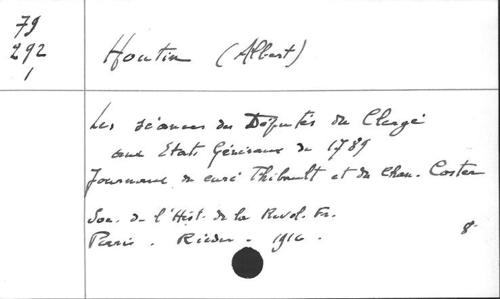 79
292
1
Houtin (Albert)
Les séances des Députés du Clergé
aux Etats Généraux de 1789
Journaux du curé Thibault et du Chan. Coster
Soc. de l'Hist. de la Revol. Fr.
Paris. Rieder. 1916. 8°